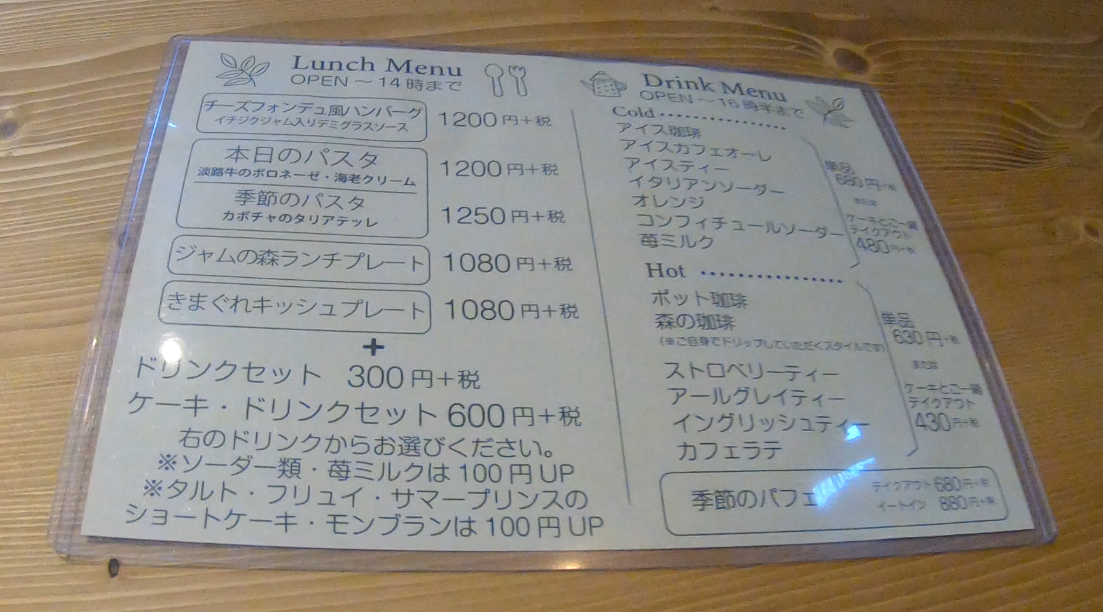 Lunch Menu
OPEN ～ 14 時まで
チーズフォンデュ風ハンバーグ
イチジクジャム入りデミグラスソース
1200 円＋税
本日のパスタ
淡路牛のボロネーゼ・海老クリーム
1200 円＋税
季節のパスタ
カボチャのタリアテッレ
1250 円＋税
ジャムの森ランチプレート 1080 円＋税
きまぐれキッシュプレート 1080 円＋税
＋
ドリンクセット 300 円＋税
ケーキ・ドリンクセット 600 円＋税
右のドリンクからお選びください。
※ソーダー類・苺ミルクは 100 円 UP
※タルト・フリュイ・サマープリンスの
ショートケーキ・モンブランは 100 円 UP
Drink Menu
OPEN ～16 時半まで
Cold
アイス珈琲
アイスカフェオーレ
アイスティー
イタリアンソーダー
オレンジ
コンフィチュールソーダー
苺ミルク
単品
680 円＋税
または
ケーキとご一緒
テイクアウト
480円＋税
Hot
ポット珈琲
森の珈琲
(※ご自身でドリップしていただくスタイルです)
ストロベリーティー
アールグレイティー
イングリッシュティー
カフェラテ
単品
630 円＋税
または
ケーキとご一緒
テイクアウト
430円＋税
季節のパフェ
テイクアウト 680円＋税
イートイン 880円＋税